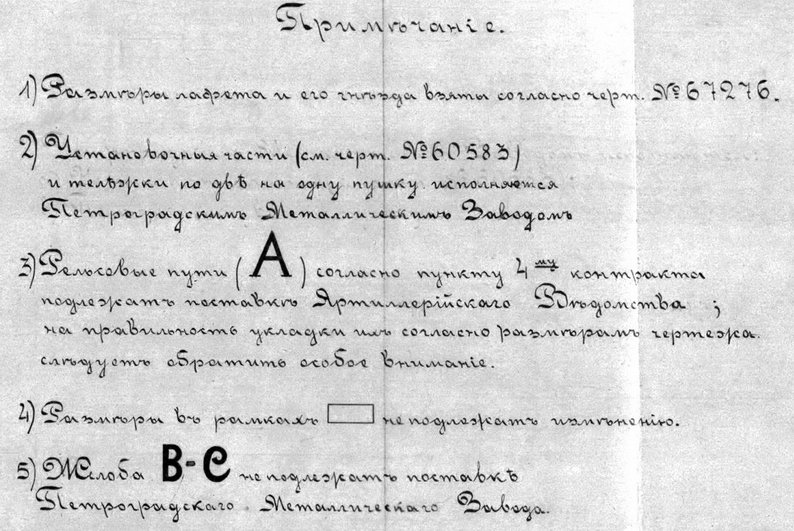 Примѣчаніе.
1) Размѣры лафета и его гнѣзда взяты согласно черт. №67276.
2) Установочныя части (см. черт. №60583)
и телѣжки по двѣ на одну пушку исполняются
Петроградскимъ Металлическимъ Заводомъ
3) Рельсовые пути (А) согласно пункту 4му контракта
подлежатъ поставкѣ Артиллерійскаго Вѣдомства;
на правильность укладки ихъ согласно размѣрамъ чертежа
слѣдуетъ обратить особое вниманіе.
4) Размѣры въ рамкахъ не подлежатъ измѣненію.
5) Жолоба В-С не подлежатъ поставкѣ
Петроградскаго Металлическаго Завода.